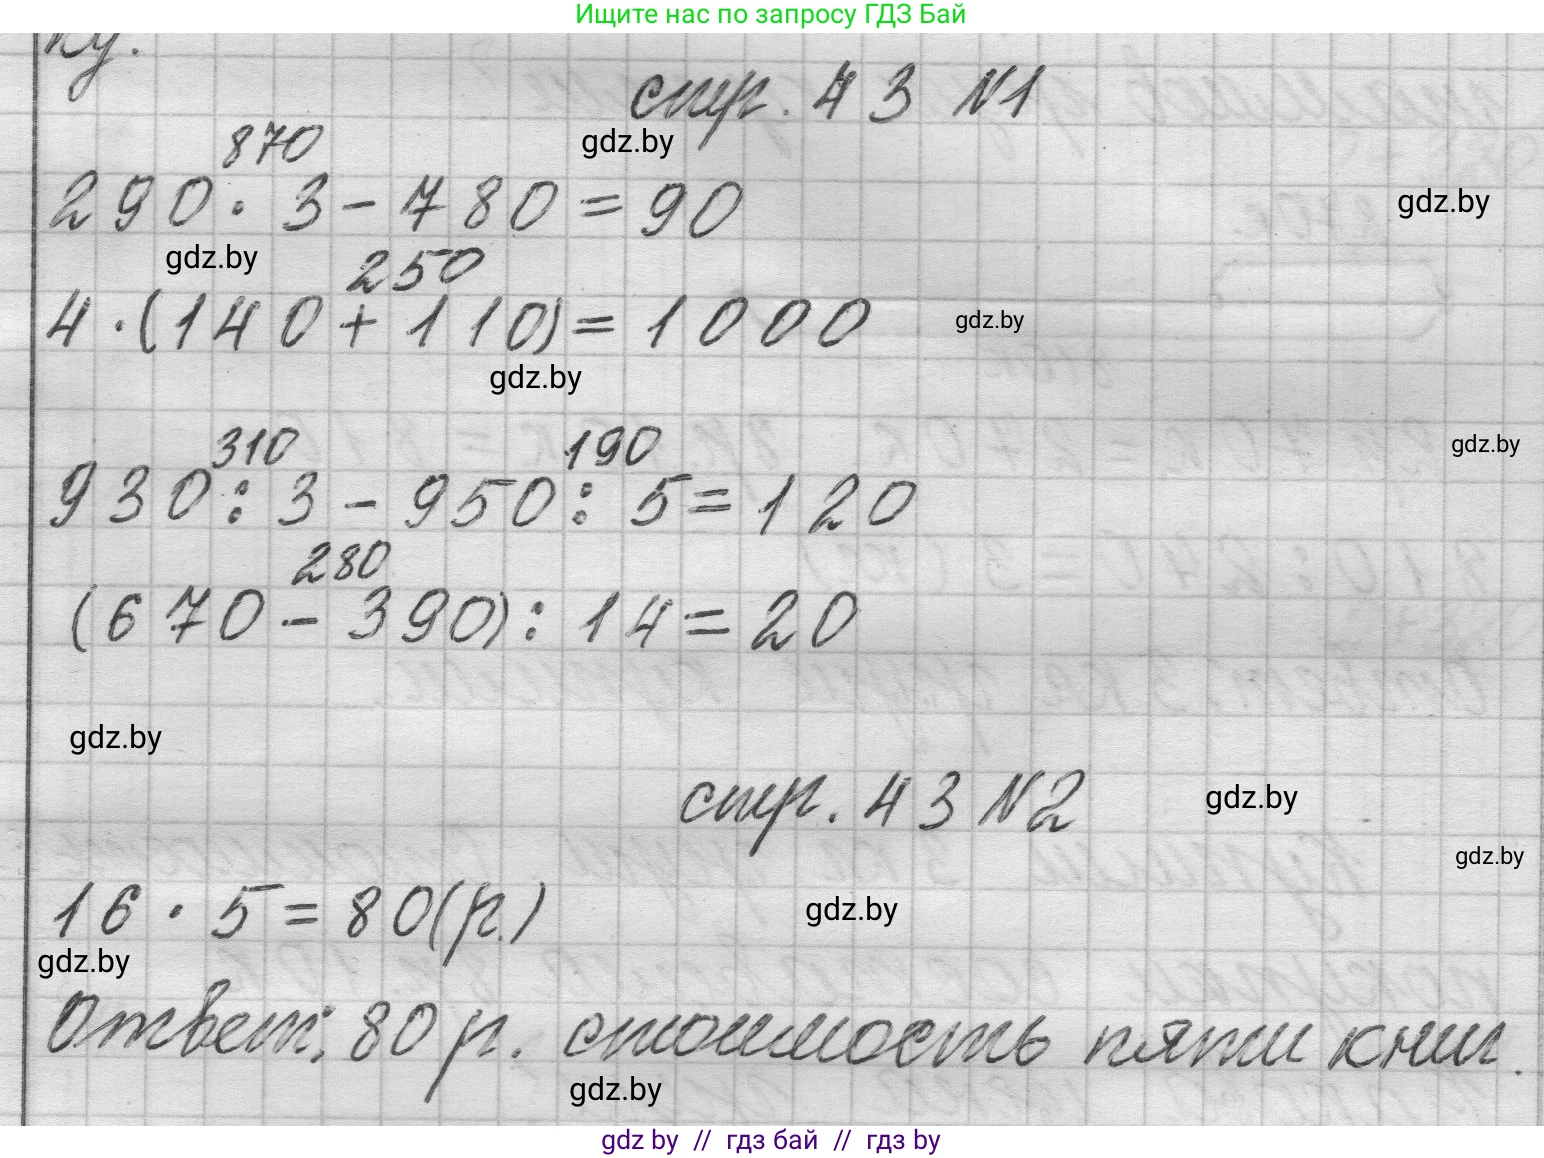 Ищите нас по запросу ГДЗ Бай
ку.
стр. 43 N1
gdz.by
870
290 · 3 - 780 = 90
gdz.by
gdz.by
250
4 · (140 + 110) = 1000
gdz.by
gdz.by
310 190
930 : 3 - 950 : 5 = 120
gdz.by
280
(670 - 390) : 14 = 20
gdz.by
стр. 43 N2
gdz.by
gdz.by
16 · 5 = 80 (р.)
gdz.by
gdz.by
Ответ: 80 р. стоимость пяти книг.
gdz.by
gdz by // гдз бай // гдз by